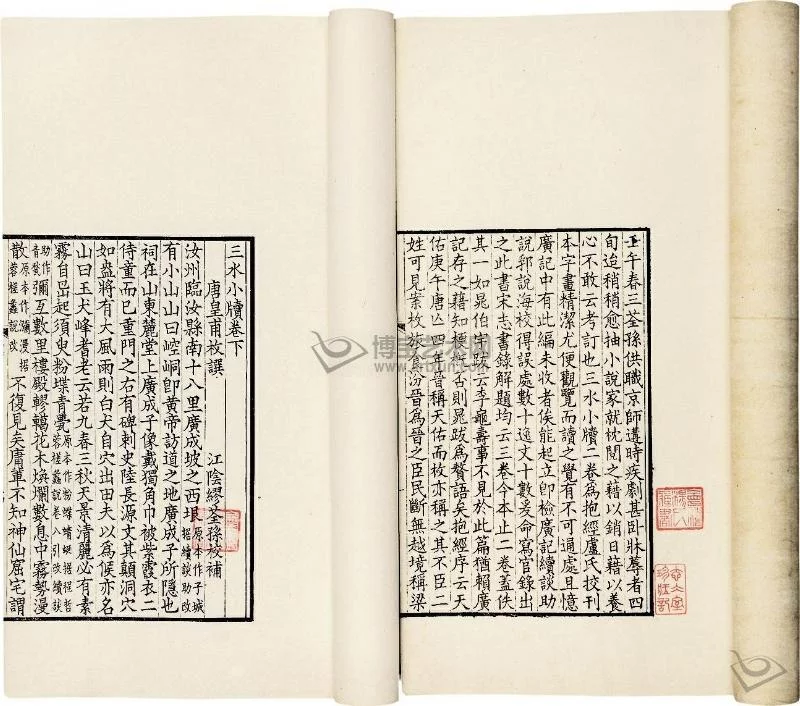 壬午春三荃孫供職京師遘時疾劇甚卧牀蓐者四
旬迨稍稍愈抽小說家就枕閱之藉以銷日藉以養
心不敢云考訂也三水小牘二卷為抱經盧氏挍刊
本字畫精潔尤便觀覽而讀之覺有不可通處且憶
廣記中有此編未收者俟能起立卽檢廣記續談助
說郛說海校得誤處數十逸文十數爰命寫官錄出
之此書宋志書錄解題均云三卷今本止二卷蓋佚
其一如晁伯宇跋云李龜壽事不見於此篇猶賴廣
記存之藉知梗槩否則晁跋為贅語矣抱經序云天
佑庚午唐亾四年晉稱天佑而枚亦稱之其不臣二
姓可見案枚旅食汾晉為晉之臣民斷無越境稱梁
三水小牘卷下
唐皇甫枚譔 江陰繆荃孫校補
汝州臨汝縣南十八里廣成坡之西垠原本作子城據續談助改
有小山山曰崆峒卽黃帝訪道之地廣成子所隱也
祠在山東麓堂上廣成子像戴獨角巾被紫霞衣二
侍童而已重門之右有碑刺史陸長源文其顛洞穴
如盎將有大風雨則白犬自穴出田夫以為候亦名
山曰玉犬峰耆老云若九春三秋天景清麗必有素
霧自喦起須臾粉堞青甍原本作粉蝶蜻蜓據程哲蓉槎蠡說卷八引改續談
助作青甃彌亙數里樓殿轇轕花木煥爛數息中霧勢漫
散原本作瀰漫據蓉槎蠡說改不復見矣庸輩不知神仙窟宅謂
博宝艺术网